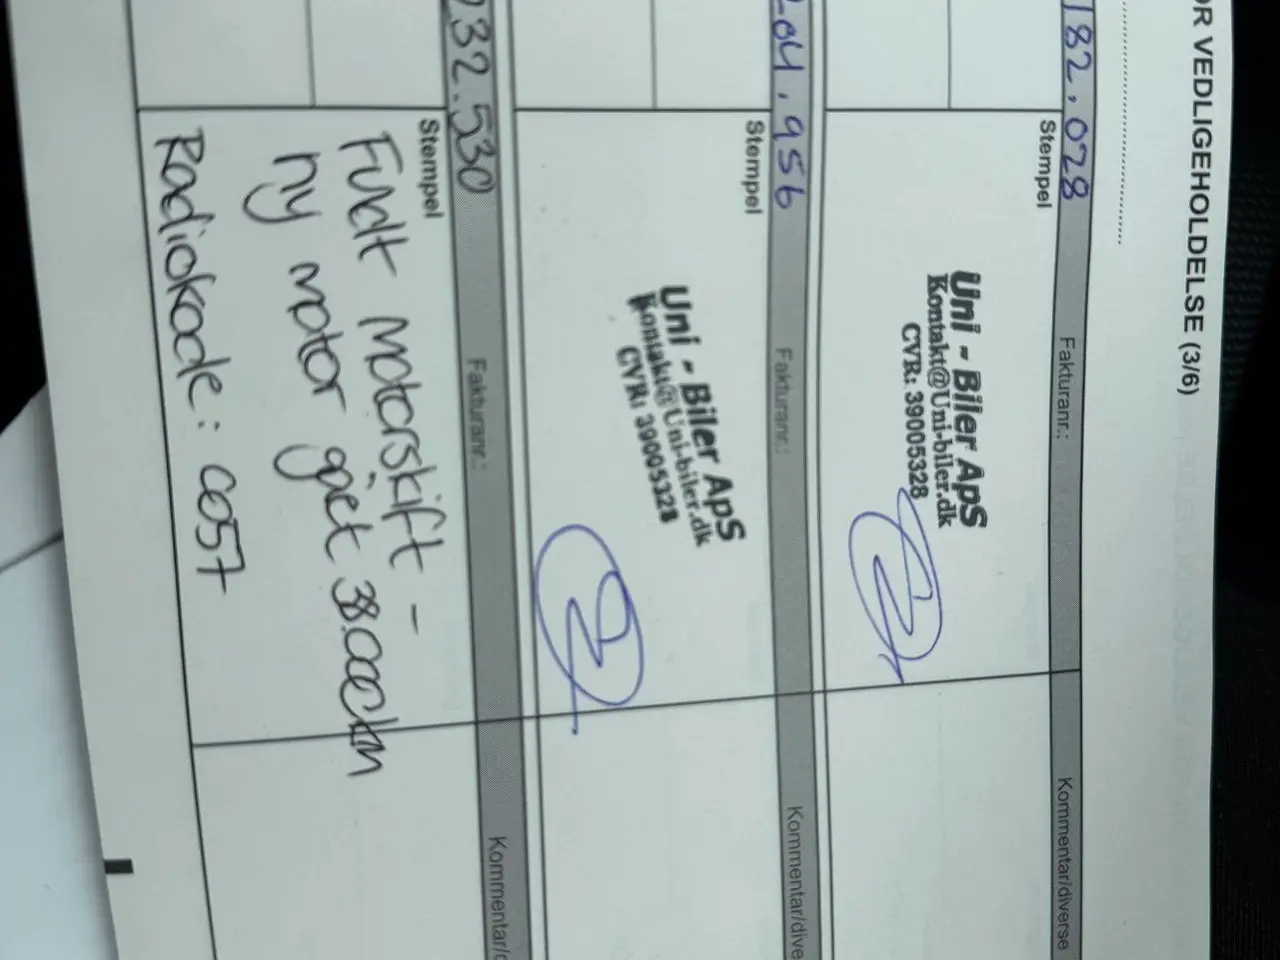 OR VEDLIGEHOLDELSE (3/6)
182.028 Fakturanr.: Kommentar/diverse
Stempel
Uni - Biler ApS
Kontakt@Uni-biler.dk
CVR: 39005328
204.956 Fakturanr.: Kommentar/dive
Stempel
Uni - Biler ApS
Kontakt@Uni-biler.dk
CVR: 39005328
232.530 Fakturanr.: Kommentar/
Stempel
Fuldt Motorskift -
ny motor gået 38.000km
Radiokode: 0057